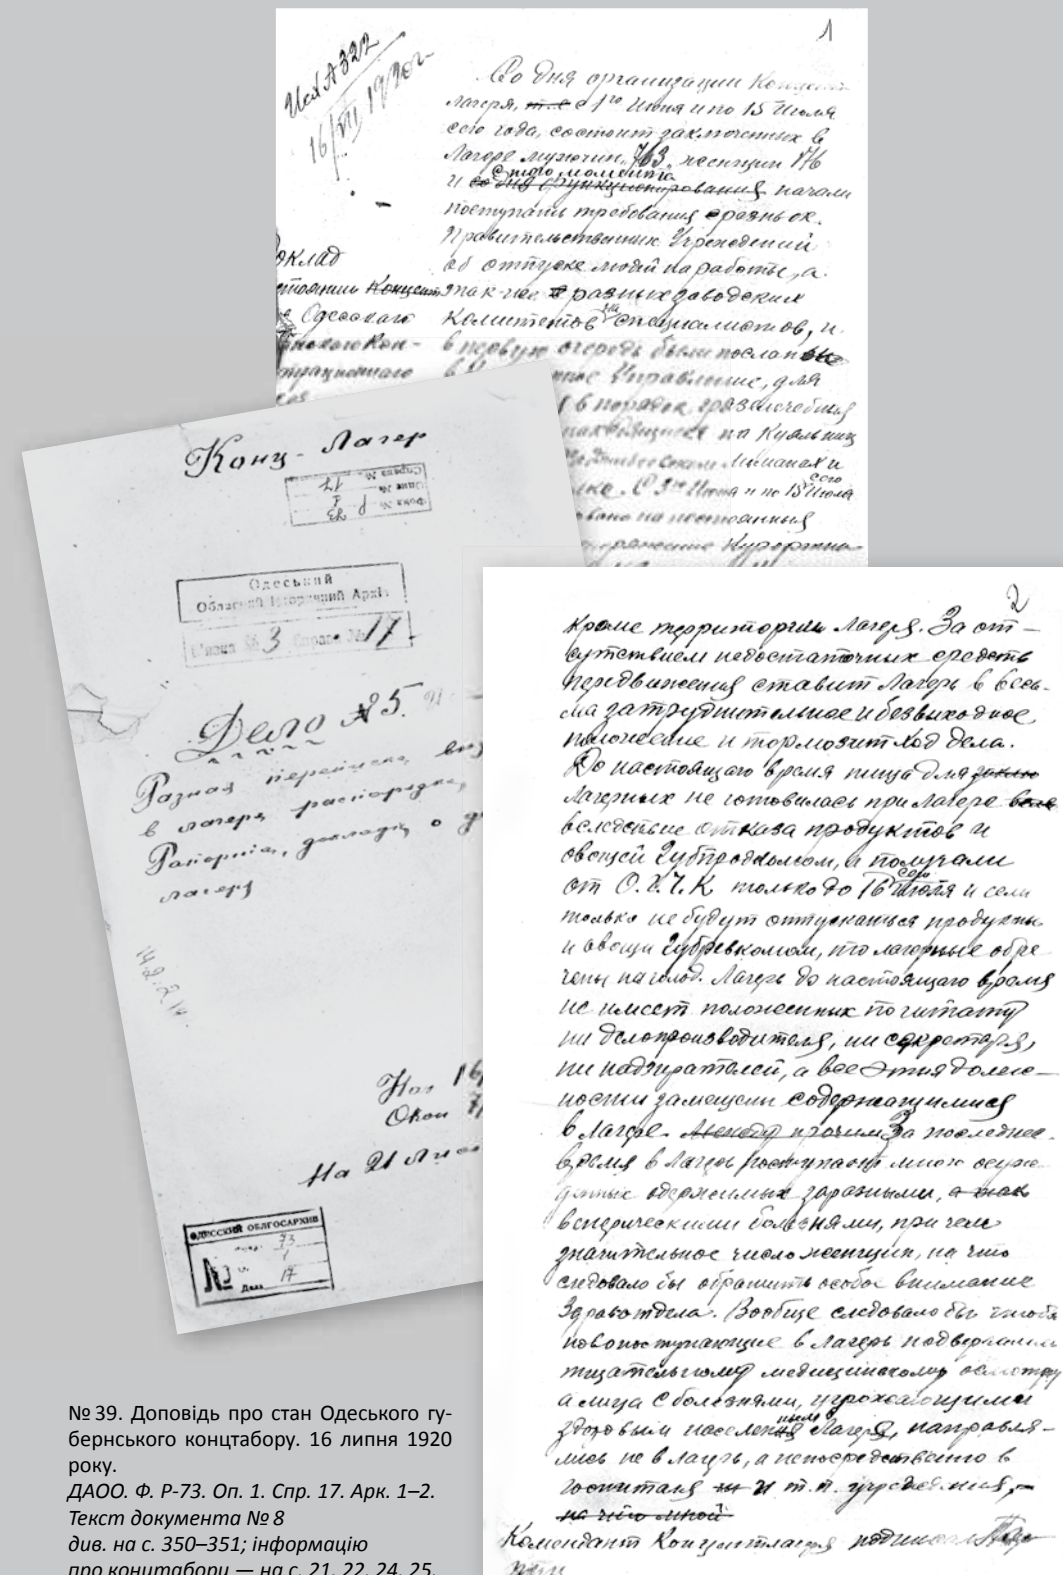 1
Исх № 322
16/VII 1920 г.
Со дня организации Концент
лагеря, т.е с 1го Июня и по 15 Июля
сего года, состоит заключенных в
Лагере мужчин 763, женщин 176
с этого момента
и со дня функционирования начали
поступать требования с разных ок.
Правительственных Учреждений
об отпуске людей на работы, а
так-же с разных заводских
комитетов специалистов, и
в первую очередь были посланы
Управление, для
в порядок грязелечебниц
находящиеся на Куяльниц
Лиманах и
сего
С 3го Июня и по 15 Июля
на постоянныя
Курортна
оклад
стоянии Концент
Одесскаго
Кон-
трационнаго
Конц-Лагер
Фонд № Р 73
Опис № 1
Справа № 17
Одеський
Обласний Історичний Архів
Опис № 3 Справа № 17
Дело № 5.
Разная переписка
в лагере распорядка,
Рапорта, доклады о
лагеря
Нач 16
Окон
На 21 лис
ОДЕССКИЙ ОБЛГОСАРХИВ
73
1
№ Дела 17
2
кроме территории Лагеря. За от-
сутствием недостаточных средств
передвижения ставит Лагерь в весь-
ма затруднительное и безвыходное
положение и тормозит ход дела.
До настоящаго время пища для заклю
Лагерных не готовилась при Лагере
вследствие отказа продуктов и
овощей Губпродкомом, а получали
сего
от О.Г.Ч.К только до 16 Июля и если
только не будут отпускаться продукты
и овощи Губревкомом, то лагерные обре
чены на голод. Лагерь до настоящаго время
не имеет положенных по штату
ни делопроизводителя, ни секретаря,
ни надзирателей, а все этия долж-
ности замещены содержащимися
в Лагере. Между прочим За последнее
время в Лагерь поступают много осуж
денных одержимых заразными, а так
венерическими болезнями, при чем
значительное число женщин, на что
следовало бы обратить особое внимание
Здравотдела. Вообще следовало бы чтобы
новопоступающие в Лагерь подвергались
тщательному медицинскому осмотру
а лица с болезнями, угрожающими
здоровым населения Лагеря, направля-
лись не в лагерь, а непосредственно в
госпиталя и т.п. учреждения,-
на что мной
Комендант Концентлагеря подписал
№ 39. Доповідь про стан Одеського гу-
бернського концтабору. 16 липня 1920
року.
ДАОО. Ф. Р-73. Оп. 1. Спр. 17. Арк. 1–2.
Текст документа № 8
див. на с. 350–351; інформацію
про концтабори — на с. 21, 22, 24, 25.